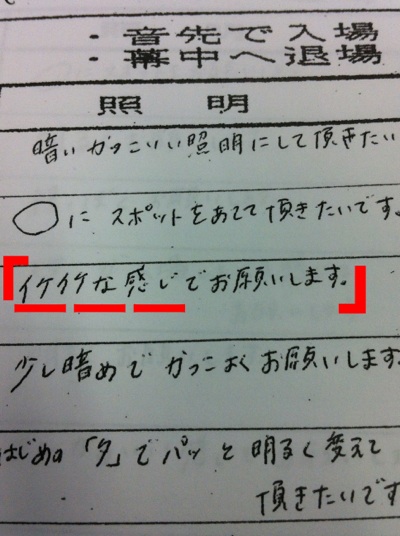 ・音先で入場
・幕中へ退場
照 明
暗いかっこいい照明にして頂きたい
○に スポットをあてて頂きたいです。
「イケイケな感じでお願いします。」
少し暗めで かっこよくお願いします
はじめの「夕」でパッと明るく変えて
頂きたいです